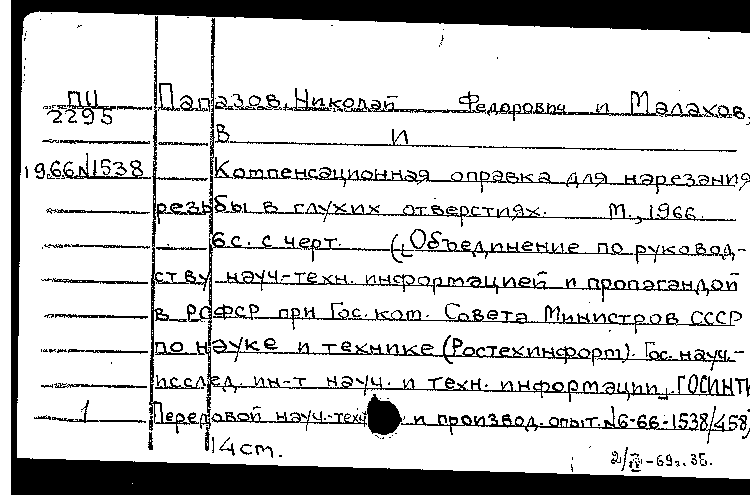 ПЦ Папазов, Николай Федорович и Малахов,
2295
В И
1966 №1538 Компенсационная оправка для нарезания
резьбы в глухих отверстиях. М., 1966.
6с. с черт. (Объединение по руковод-
ству науч.-техн. информацией и пропагандой
в РСФСР при Гос. ком. Совета Министров СССР
по науке и технике (Ростехинформ). Гос. науч.-
исслед. ин-т науч. и техн. информации. ГОСИНТИ
1 Передовой науч.-техн и производ. опыт. №6-66-1538/458
14 см.
2/IV-69г. 35.